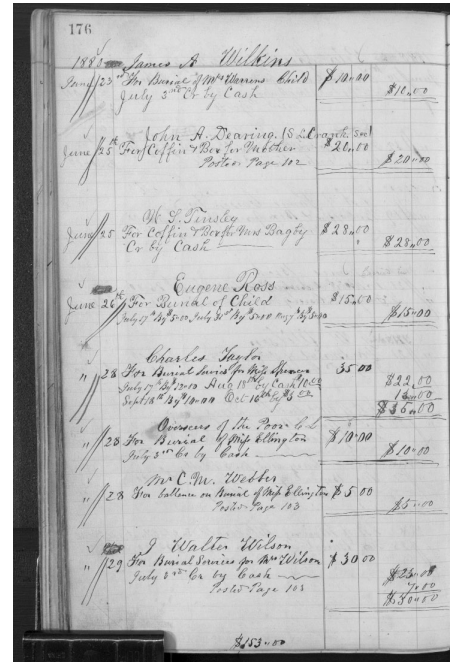 176
1880 James A Wilkins
June 23rd For Burial of Mrs Warrens Child $10.00
July 3rd Cr by Cash $10.00
John A. Dearing (S.L.
June 25th For Coffin & Box for Mother $20.00
Posted Page 102 $20.00
W. S. Tinsley
June 25 For Coffin & Box for Mrs Bagby $28.00
Cr by Cash $28.00
Eugene Ross
June 26th For Burial of Child $15.00
July 17th By $5.00 July 31st By $5.00 By $5.00 $15.00
Charles Taylor
" 28 For Burial Servis for Miss Spencer 35.00
July 17th By $12.00 Aug 18th by Cash 10.00 $22.00
Sept 18th By $10.00 Oct 16th by $3.00 13.00
$35.00
Overseers of the Poor C L
" 28 For Burial of Miss Ellington $10.00
July 3rd Cr by Cash $10.00
Mr C. M. Webber
" 28 For ballence on Burial of Miss Ellington $5.00
Posted Page 103 $5.00
J Walter Wilson
" 29 For Burial Services for Mrs Wilson $30.00
July 3rd Cr by Cash $23.00
Posted Page 103 7.00
$30.00
$153.00